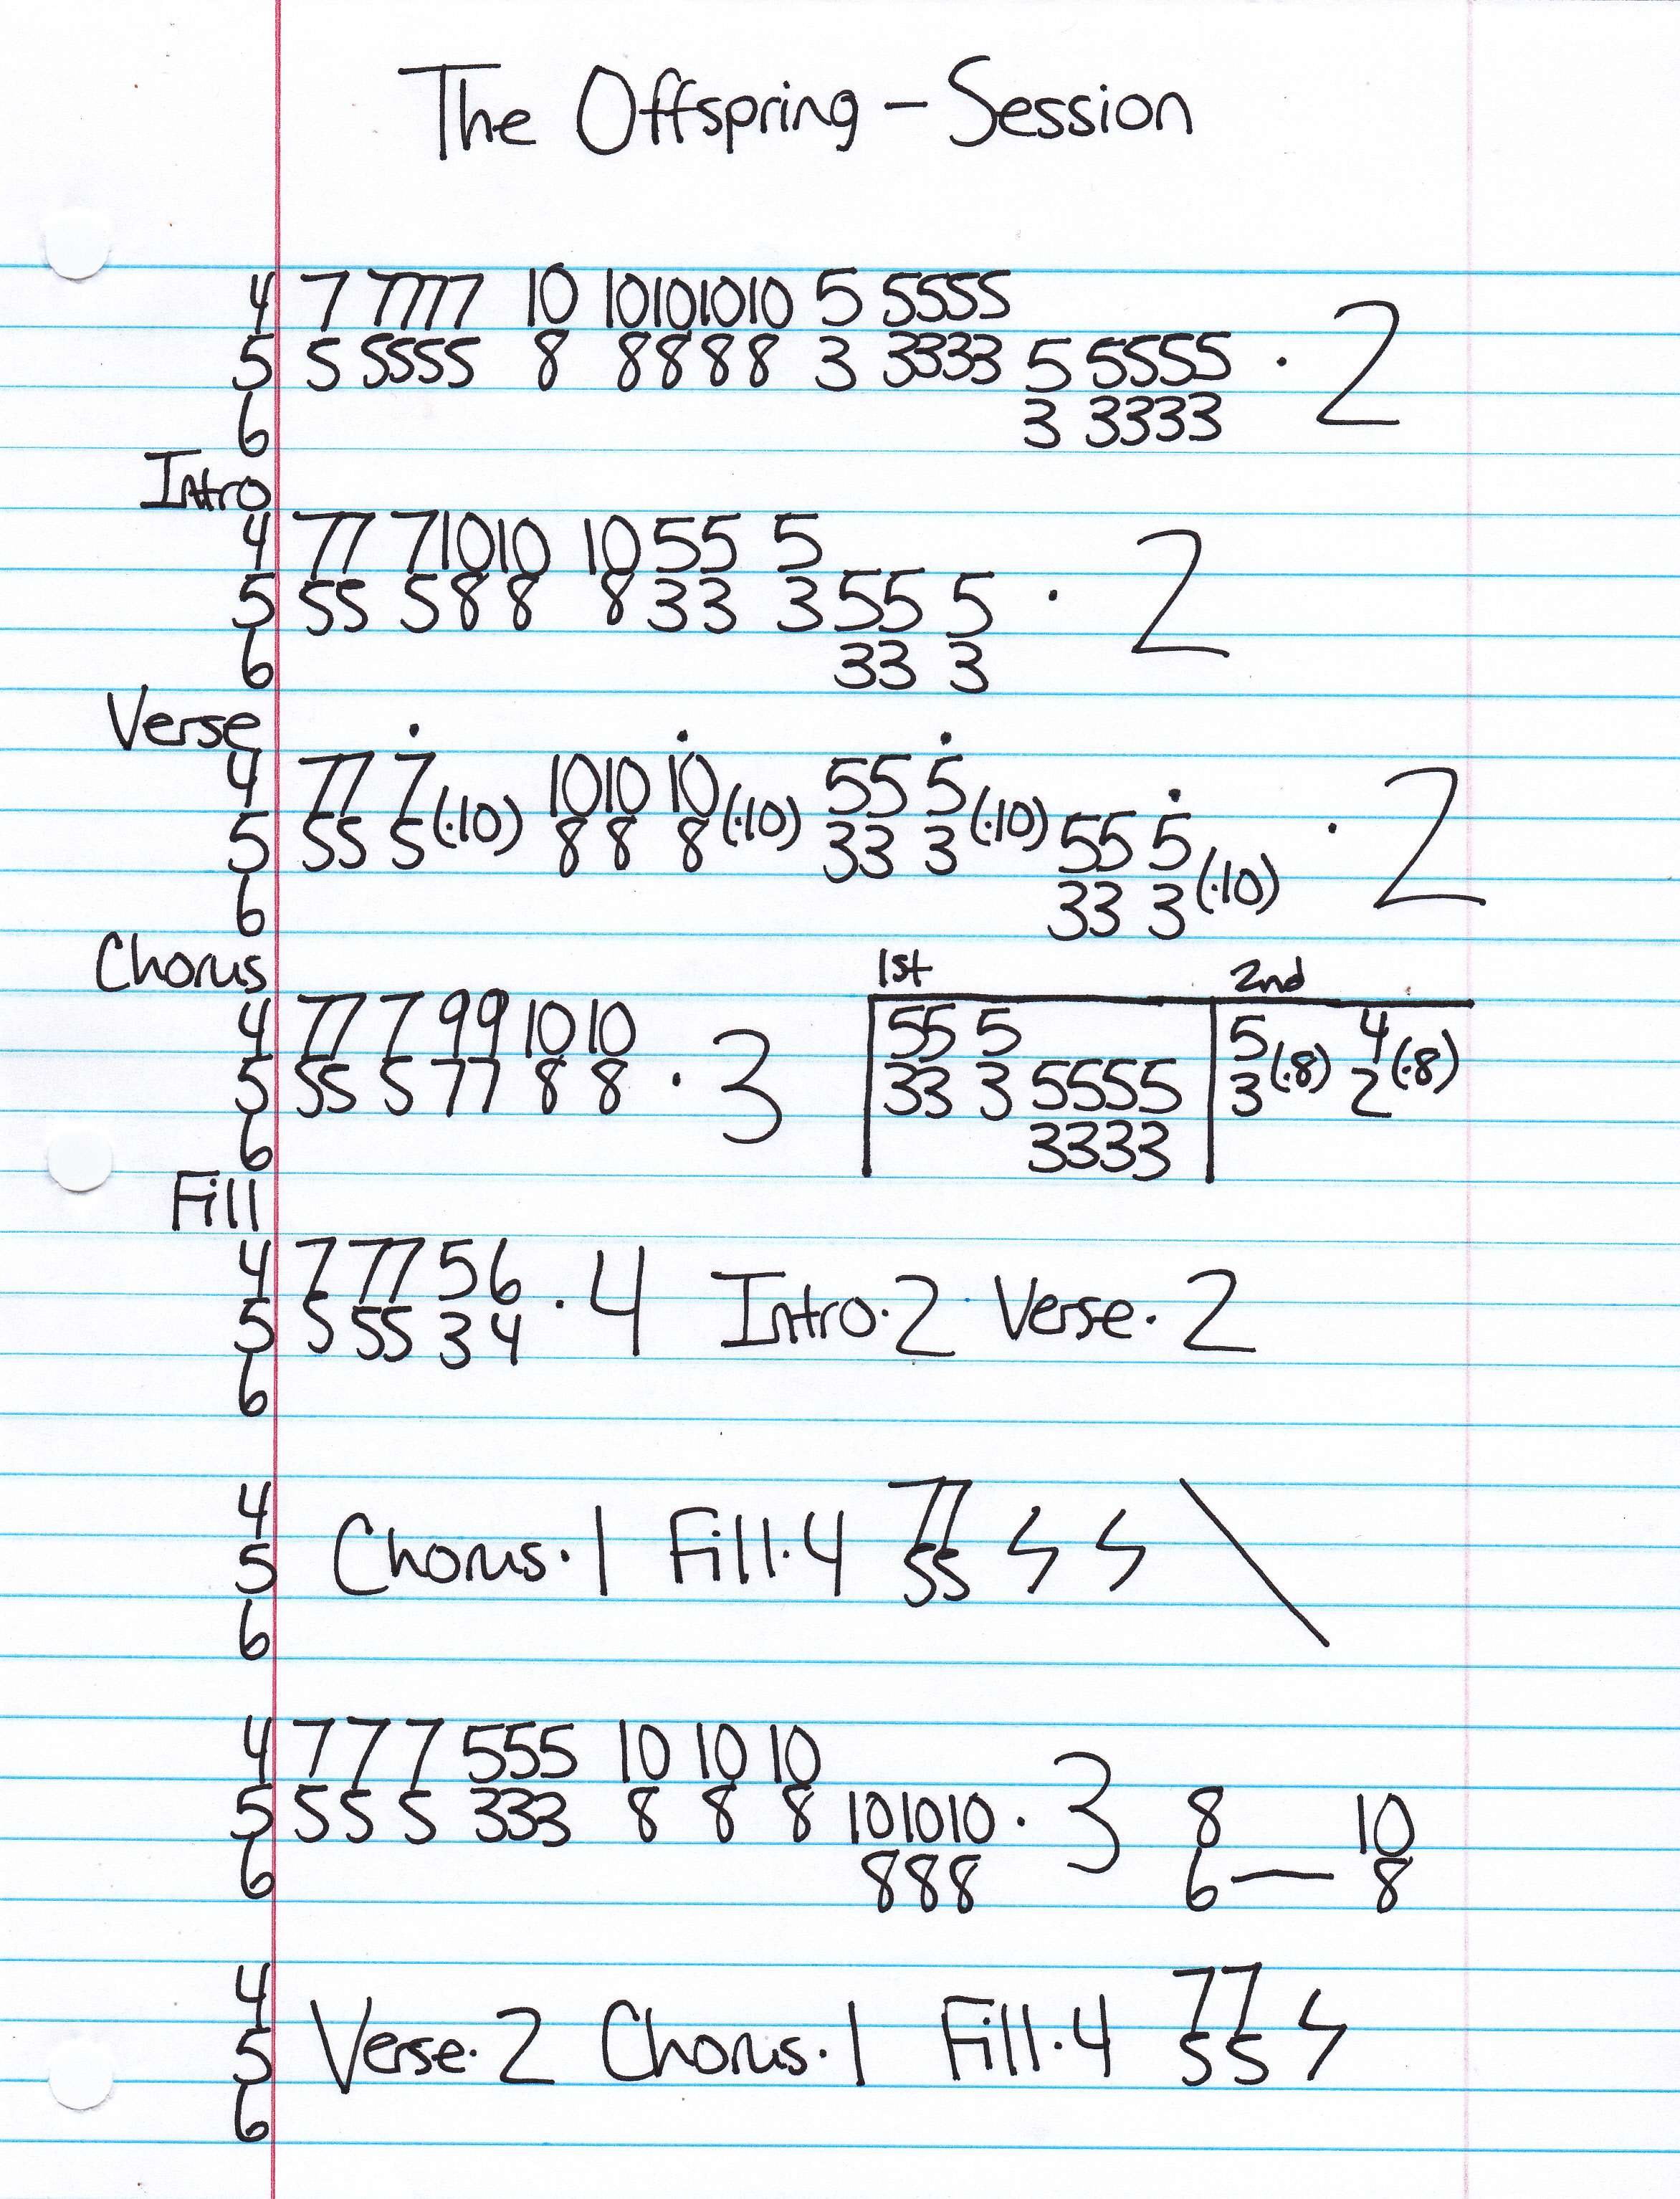 The Offspring - Session
4 7 7777 10 10101010 5 5555
5 5 5555 8 8888 3 3333 5 5555 · 2
6 3 3333
Intro
4 77 71010 10 55 5
5 55 588 8 33 3 55 5 · 2
6 33 3
Verse
4 77 7 1010 10 55 5
5 55 5 (·10) 88 8 (·10) 33 3 (·10) 55 5 · 2
6 33 3 (·10)
Chorus 1st 2nd
4 77 7 99 10 10 55 5 5 4
5 55 5 77 8 8 · 3 33 3 5555 3 (·8) 2 (·8)
6 3333
Fill
4 7 77 56
5 5 55 34 · 4 Intro·2 Verse·2
6
4 77
5 Chorus·1 Fill·4 55
6
4 7 7 7 555 10 10 10
5 5 5 5 333 8 8 8 101010 · 3 8 10
6 888 6 — 8
4 77
5 Verse·2 Chorus·1 Fill·4 55
6